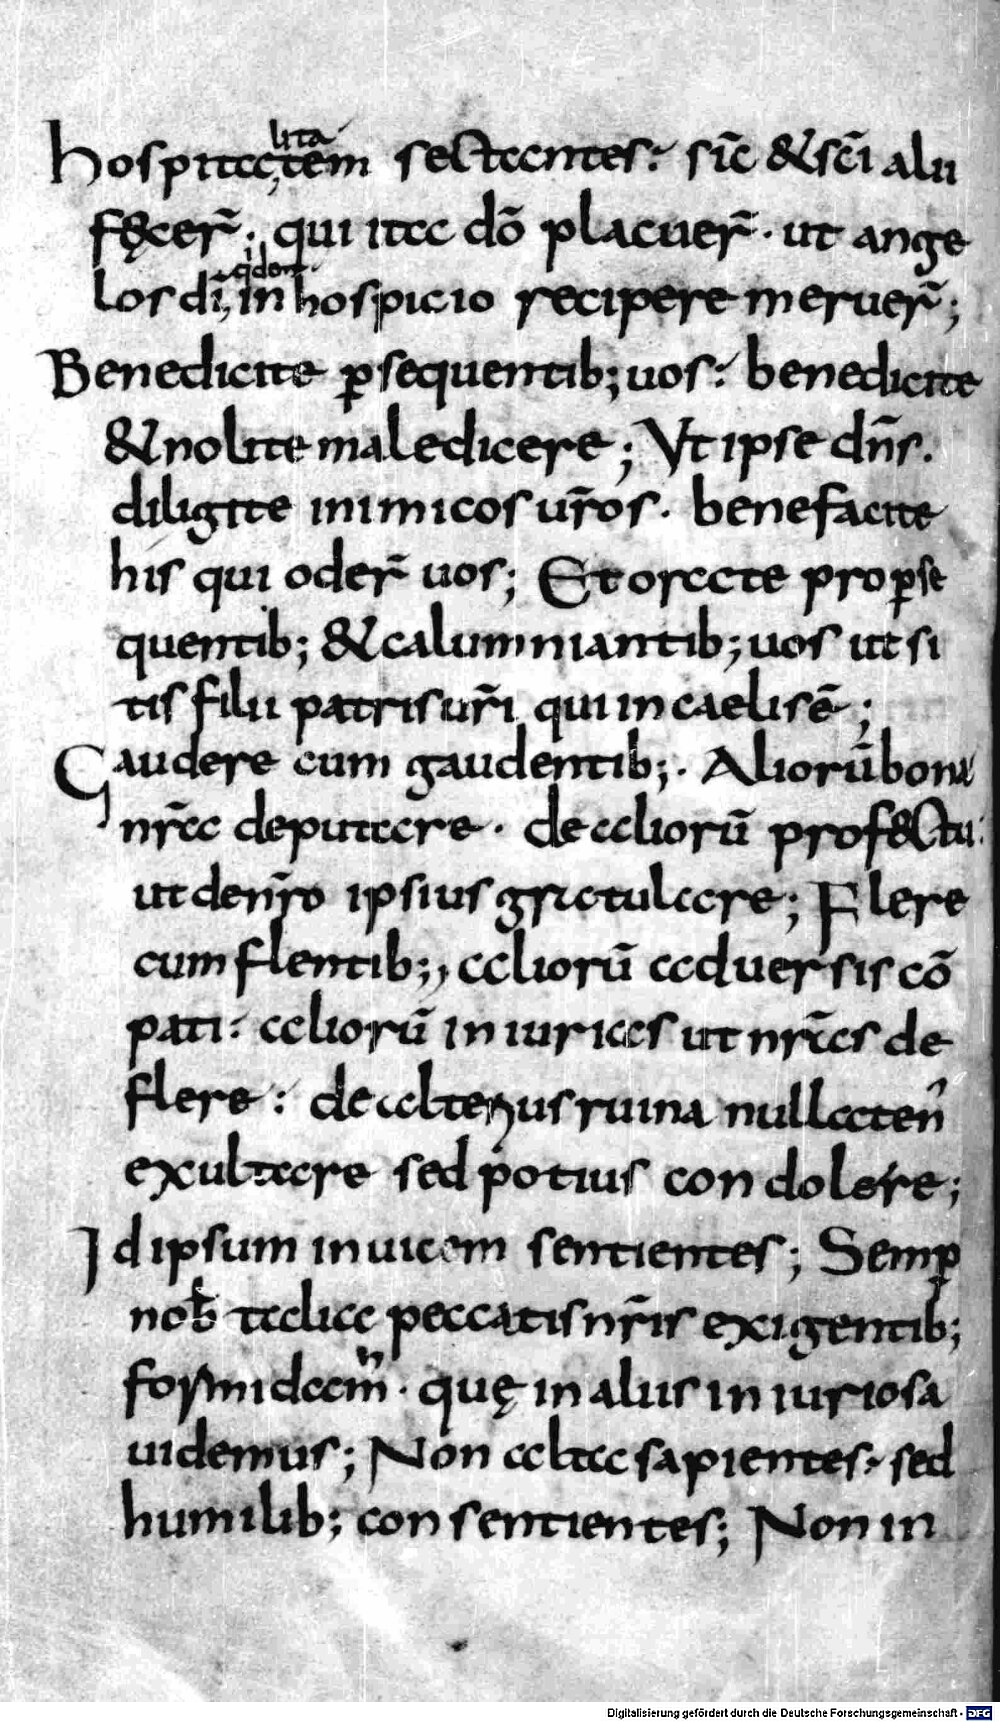 hospita,litatem sectantes: sic̄ & sc̄i alii
fęcer̄; qui ita dō placuer̄· ut ange
los dī, quidem in hospicio recipere meruer̄;
Benedicite ꝑsequentib; uos: benedicite
& nolite maledicere; Ut ipse dn̄s.
diligite inimicos ur̄os· benefacite
his qui oder̄ uos; Et orate pro ꝑse
quentib; & calumniantib; uos ut si
tis filii patris ur̄i qui in caelis ē;
Gaudere cum gaudentib;· Aliorū bona
nr̄a deputare· de aliorū profectu
ut de nr̄o ipsius gratulare; Flere
cum flentib;, aliorū aduersis cō
pati: aliorū iniurias ut nr̄as de
flere: de alterius ruina nullaten'
exultare sed potius condolere;
Id ipsum inuicem sentientes; Semꝑ
nob̄ talia peccatis nr̄is exigentib;
formidam· quę in aliis iniuriosa
uidemus; Non alta sapientes· sed
humilib; consentientes; Non in
Digitalisierung gefördert durch die Deutsche Forschungsgemeinschaft - DFG